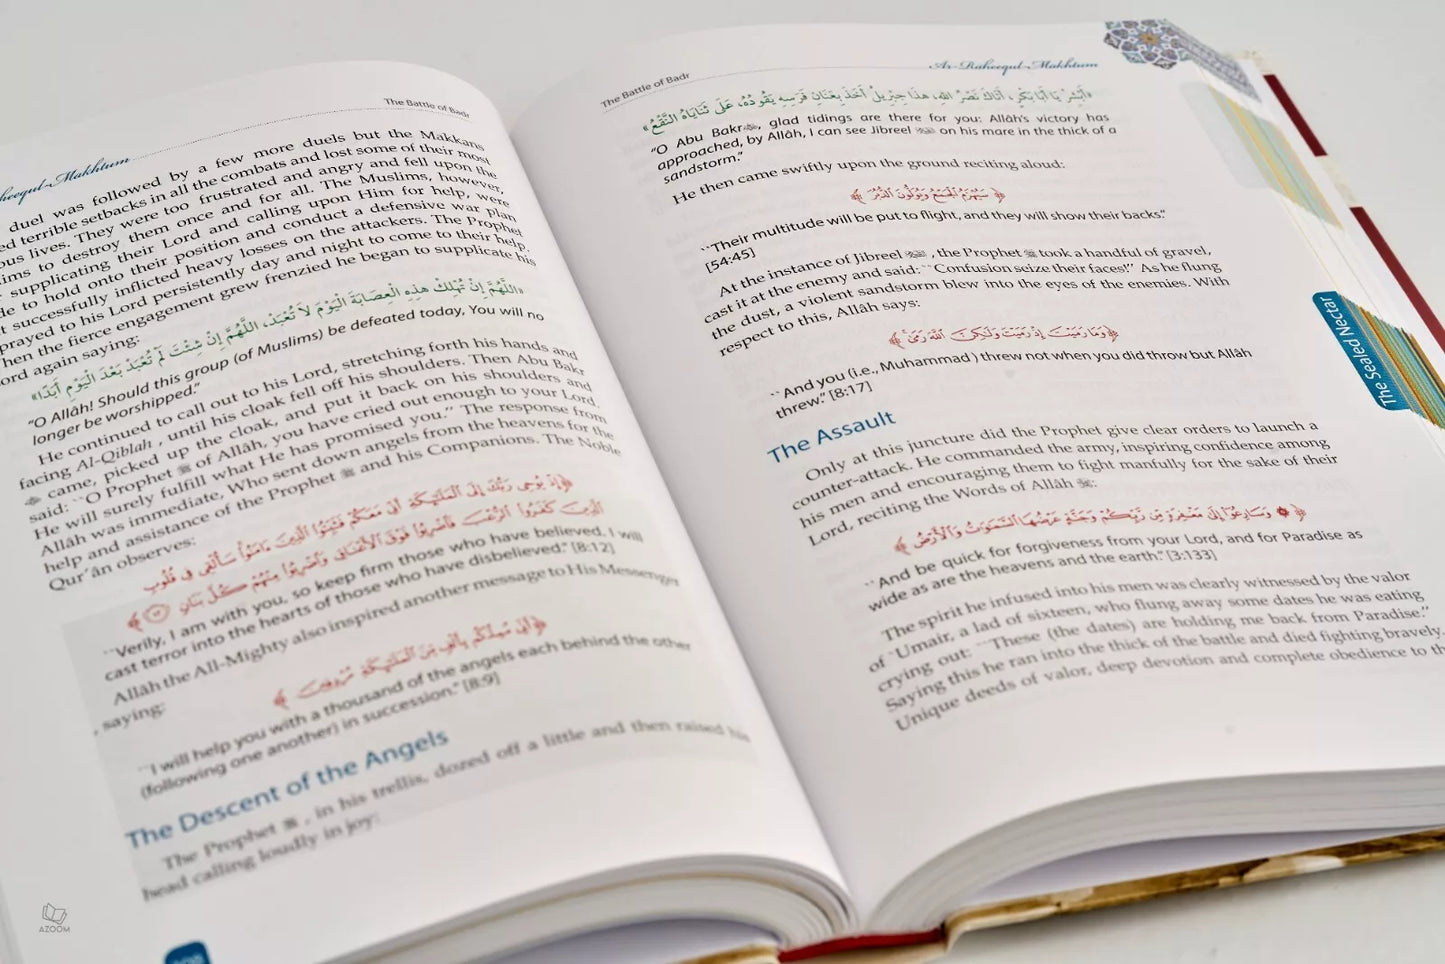 heequl-Makhtum
The Battle of Badr
duel was followed by a few more duels but the Makkans
ed terrible setbacks in all the combats and lost some of their most
ous lives. They were too frustrated and angry and fell upon the
lims to destroy them once and for all. The Muslims, however,
supplicating their Lord and calling upon Him for help, were
de to hold onto their position and conduct a defensive war plan
t successfully inflicted heavy losses on the attackers. The Prophet
prayed to his Lord persistently day and night to come to their help.
hen the fierce engagement grew frenzied he began to supplicate his
ord again saying:
«اللَّهُمَّ إِنْ تُهْلِكْ هذِهِ الْعِصَابَةَ الْيَوْمَ لَا تُعْبَدْ، اللَّهُمَّ إِنْ شِئْتَ لَمْ تُعْبَدْ بَعْدَ الْيَوْمِ أَبَدًا»
“O Allâh! Should this group (of Muslims) be defeated today, You will no
longer be worshipped.”
He continued to call out to his Lord, stretching forth his hands and
facing Al-Qiblah , until his cloak fell off his shoulders. Then Abu Bakr
came, picked up the cloak, and put it back on his shoulders and
said: ``O Prophet ﷺ of Allâh, you have cried out enough to your Lord.
He will surely fulfill what He has promised you.” The response from
Allâh was immediate, Who sent down angels from the heavens for the
help and assistance of the Prophet ﷺ and his Companions. The Noble
Qur’ân observes:
﴿إِذْ يُوحِي رَبُّكَ إِلَى الْمَلَٰٓئِكَةِ أَنِّي مَعَكُمْ فَثَبِّتُوا۟ الَّذِينَ ءَامَنُوا۟ سَأُلْقِي فِي قُلُوبِ
الَّذِينَ كَفَرُوا۟ الرُّعْبَ فَاضْرِبُوا۟ فَوْقَ الْأَعْنَاقِ وَاضْرِبُوا۟ مِنْهُمْ كُلَّ بَنَانٍ ﴾
``Verily, I am with you, so keep firm those who have believed. I will
cast terror into the hearts of those who have disbelieved.” [8:12]
Allâh the All-Mighty also inspired another message to His Messenger
, saying:
﴿أَنِّي مُمِدُّكُم بِأَلْفٍ مِّنَ الْمَلَٰٓئِكَةِ مُرْدِفِينَ ﴾
``I will help you with a thousand of the angels each behind the other
(following one another) in succession.” [8:9]
The Descent of the Angels
The Prophet ﷺ , in his trellis, dozed off a little and then raised his
head calling loudly in joy:
AZOOM
The Battle of Badr
Ar-Raheequl-Makhtum
«أَبْشِرْ يَا أَبَا بَكْرٍ، أَتَاكَ نَصْرُ اللهِ، هذَا جِبْرِيلُ آخِذٌ بِعَنَانِ فَرَسِهِ يَقُودُهُ، عَلَى ثَنَايَاهُ النَّقْعُ»
“O Abu Bakr, glad tidings are there for you: Allâh’s victory has
approached, by Allâh, I can see Jibreel on his mare in the thick of a
sandstorm.”
He then came swiftly upon the ground reciting aloud:
﴿ سَيُهْزَمُ الْجَمْعُ وَيُوَلُّونَ الدُّبُرَ ﴾
``Their multitude will be put to flight, and they will show their backs.”
[54:45]
At the instance of Jibreel , the Prophet ﷺ took a handful of gravel,
cast it at the enemy and said: ``Confusion seize their faces!” As he flung
the dust, a violent sandstorm blew into the eyes of the enemies. With
respect to this, Allâh says:
﴿وَمَا رَمَيْتَ إِذْ رَمَيْتَ وَلَٰكِنَّ اللَّهَ رَمَىٰ﴾
``And you (i.e., Muhammad ) threw not when you did throw but Allâh
threw.” [8:17]
The Assault
Only at this juncture did the Prophet give clear orders to launch a
counter-attack. He commanded the army, inspiring confidence among
his men and encouraging them to fight manfully for the sake of their
Lord, reciting the Words of Allâh :
﴿ ۞ وَسَارِعُوٓا۟ إِلَىٰ مَغْفِرَةٍ مِّن رَّبِّكُمْ وَجَنَّةٍ عَرْضُهَا السَّمَٰوَٰتُ وَالْأَرْضُ ﴾
``And be quick for forgiveness from your Lord, and for Paradise as
wide as are the heavens and the earth.” [3:133]
The spirit he infused into his men was clearly witnessed by the valor
of `Umair, a lad of sixteen, who flung away some dates he was eating
crying out: ``These (the dates) are holding me back from Paradise.”
Saying this he ran into the thick of the battle and died fighting bravely.
Unique deeds of valor, deep devotion and complete obedience to th
The Sealed Nectar